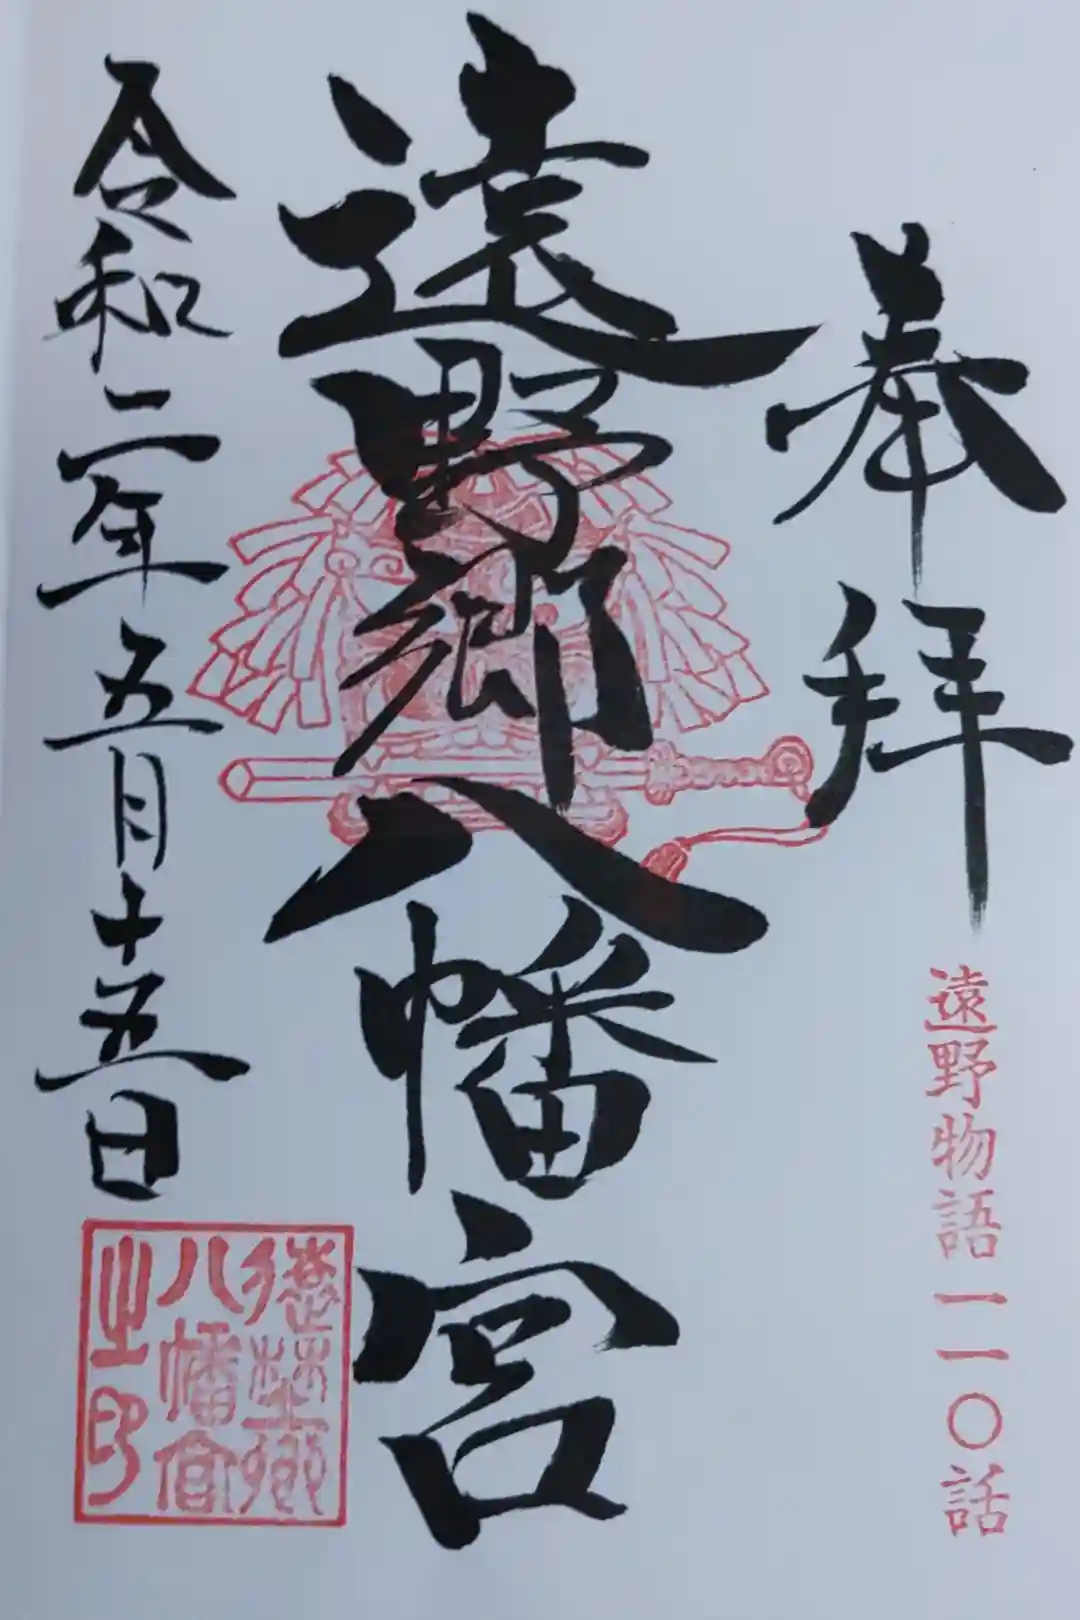 奉拝
遠野物語一一〇話
遠野郷八幡宮
令和二年五月十五日
遠野郷
八幡宮
之印